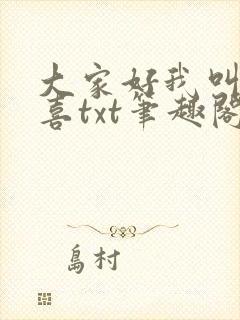 大家好我叫
喜txt笔趣阁
島村